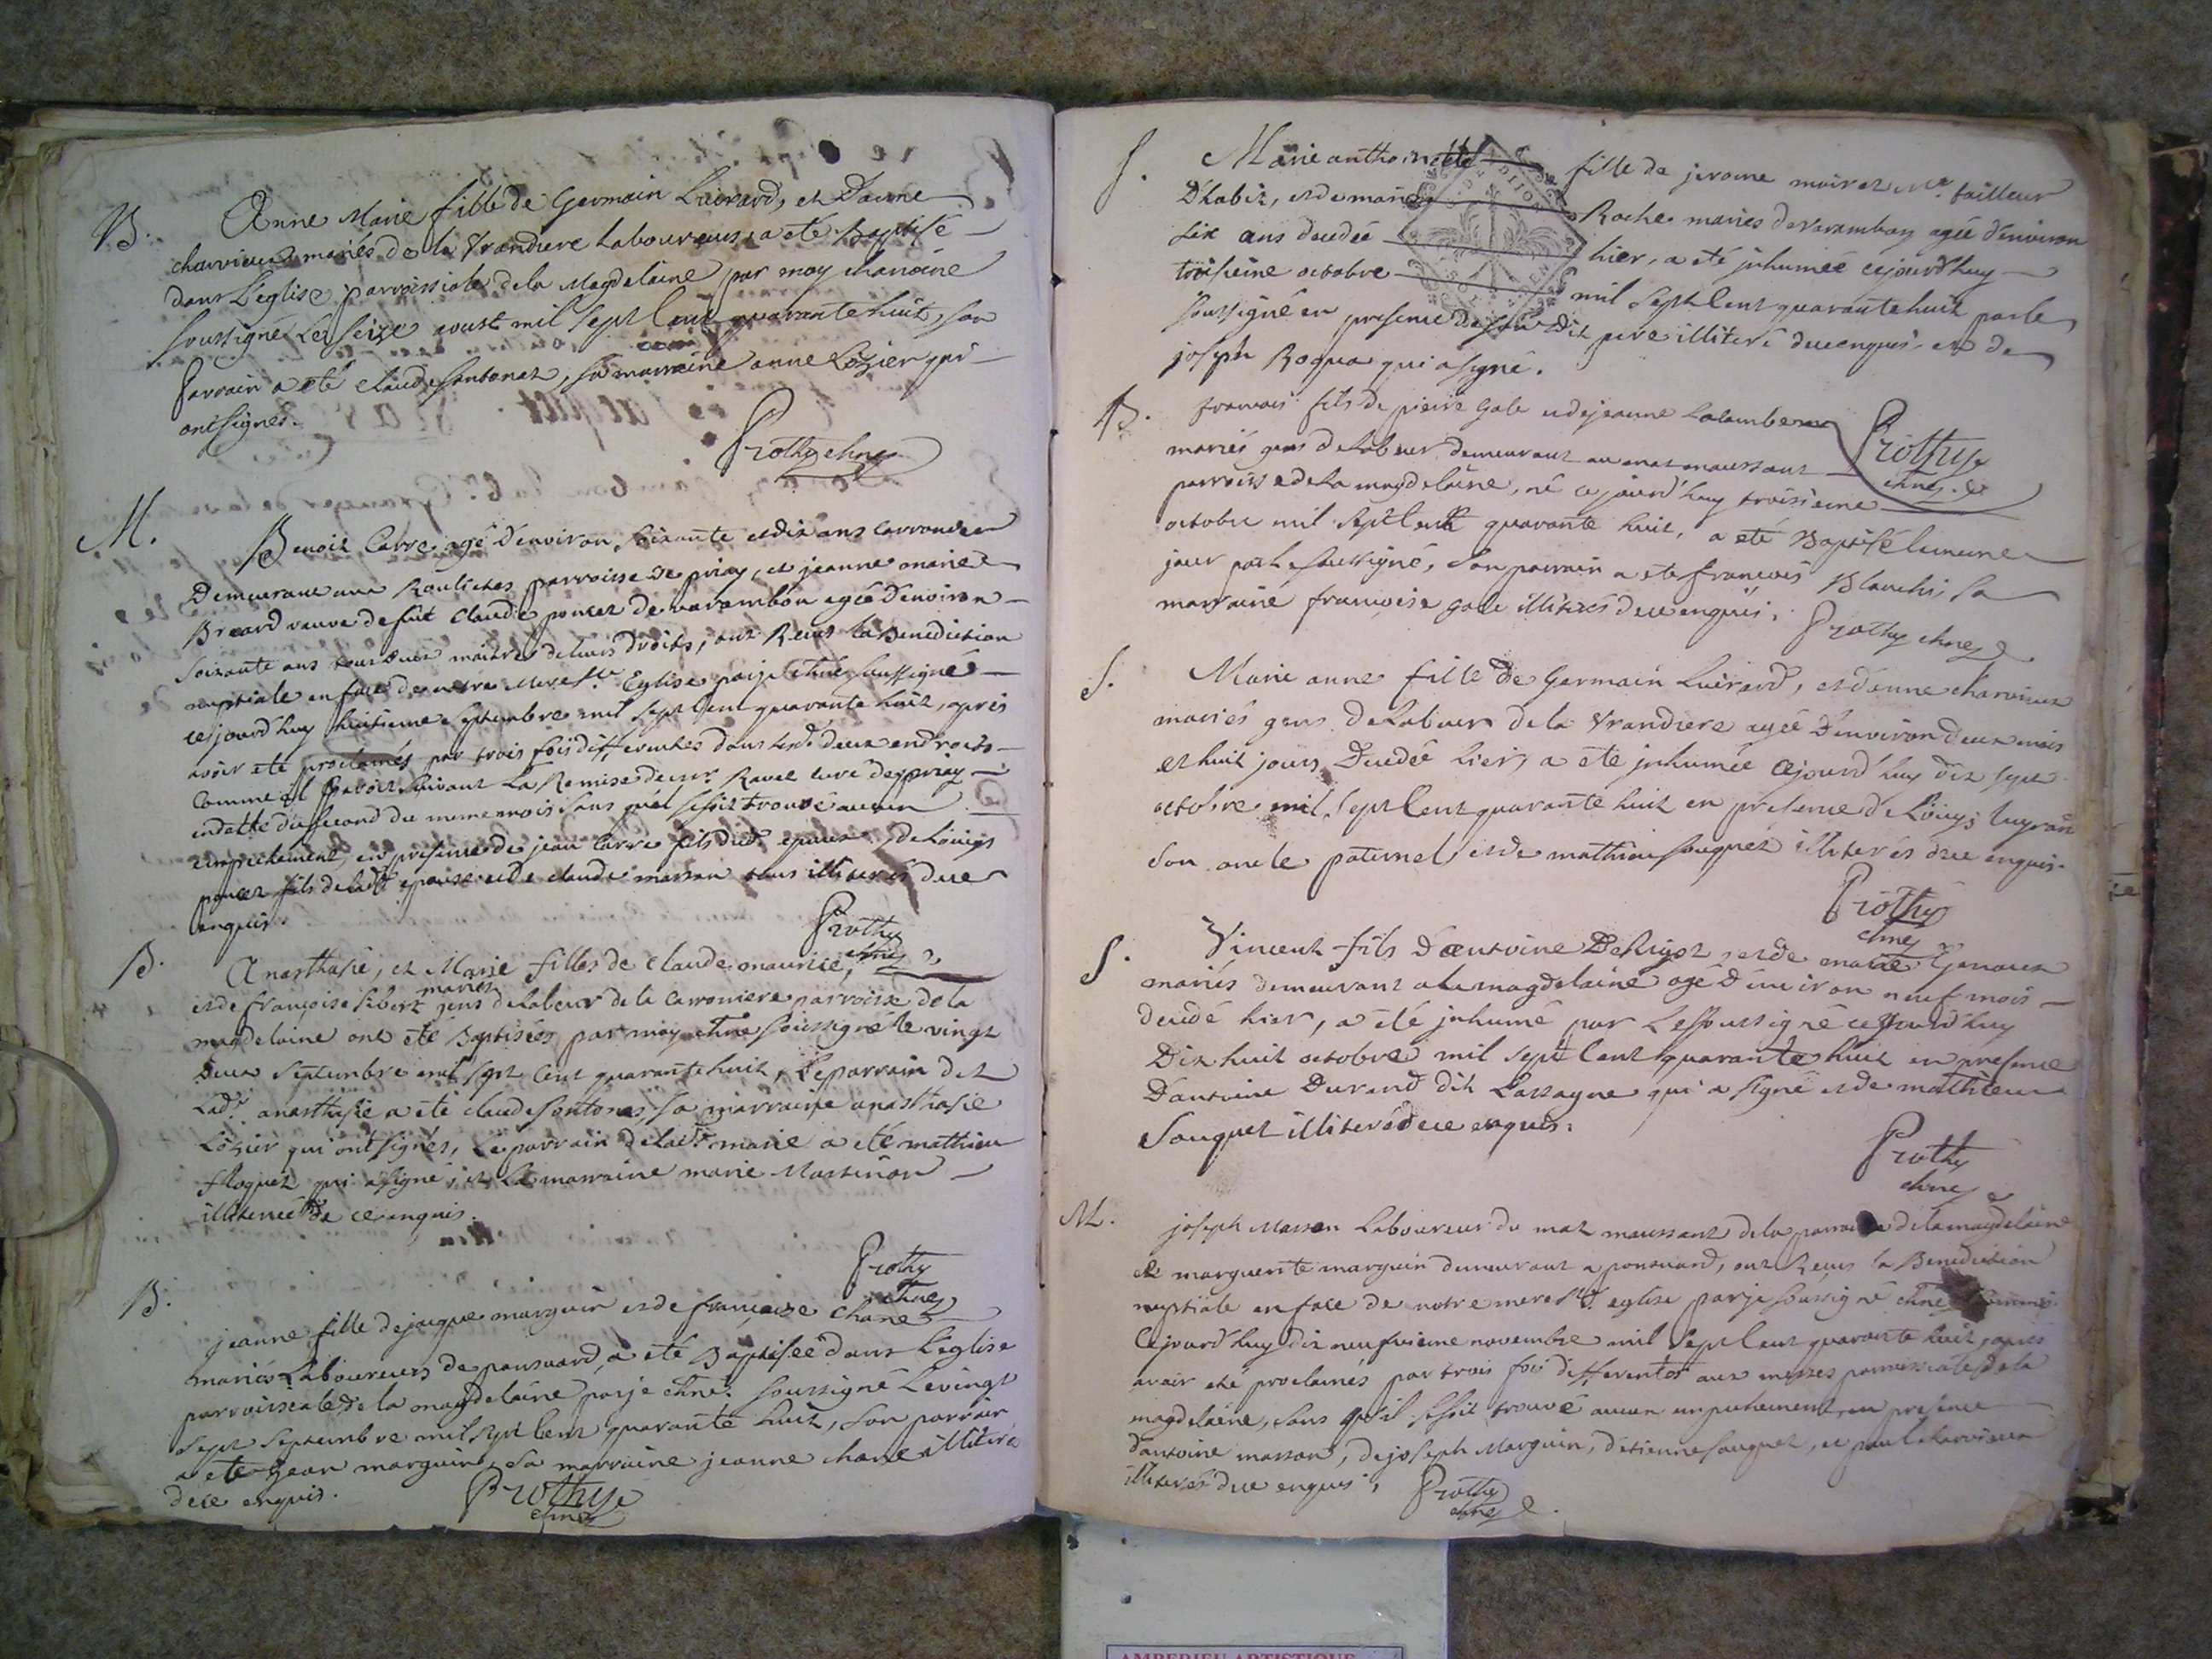 B.
Anne Marie fille de Germain Luerard, et Danne
charvieux mariés de la Vrandiere Laboureurs, a eté Baptisé
dans L'eglise parroissiale de la Magdelaine par moy chanoine
soussigné Le seize aoust mil sept Cent quarante huit, son
Parrain a eté claude Sontonat, sa marraine anne Lozier qui
ont signés.
Prothy chne
M.
Benoit Carre agé d'environ soixante et dix ans
Demeurant aux parroisse de priay, et jeanne marie
veuve de fut Claude poncet de varambon agée d'environ
soixante ans tous deux maitres de leurs droits, ont Reçus la Benediction
nuptiale en face de notre Mere Ste Eglise par je chne soussigné
cejourd'huy huitieme septembre mil sept Cent quarante huit, apres
avoir eté proclamés par trois fois differentes dans lesd. deux endroits
comme il suivant La Remise de mr Ravet curé de priay
en datte du second du meme mois sans qu'il se soit trouvé aucun
empechement, en presence de jean Carre fils dud. epoux, de Louis
poncet fils de lad. epouse et de claude masson tous illiteres de ce
enquis.
Prothy
chne
B.
Anasthasie, et Marie filles de claude maurice,
et de françoise Sibert
mariés
gens de Labeur de la Carroniere parroisse de la
magdelaine ont eté Baptisées par moy chne soussigné le vingt
Deux septembre mil sept Cent quarante huit, Le parrain de
Lad. anasthasie a eté claude Sontonas, sa marraine anasthasie
Lozier qui ont signés, Le parrain de lad. marie a eté mathieu
floquet qui a signé, et La marraine marie Martinon
illiterée de ce enquis.
Prothy
chne
B.
jeanne fille de jacque marguin et de françoise Chane
mariés Laboureurs de ponsuard, a eté Baptisée dans L'eglise
parroissiale de la magdelaine par je chne. soussigné Le vingt
sept septembre mil sept Cent quarante huit, son parrain
a eté jean marguin, sa marraine jeanne chane illiteres
de ce enquis.
Prothy
chne
S.
Marie anthoinette fille de jerome moiret Mr. tailleur
D'habit, et de marie Roche mariés de Varambon agée d'environ
six ans decedée hier, a eté inhumée cejourd'huy
troisieme octobre mil sept Cent quarante huit par le
soussigné en presence de son dit pere illiteré de ce enquis et de
joseph Roqua qui a signé.
Prothy
chne.
B.
francois fils de pierre Gale et de jeanne Colomber
mariés gens de Labeur demeurant au mat maussant
parroisse de La magdelaine, né ce jourd'huy troisieme
octobre mil sept Cent quarante huit, a eté Baptisé le meme
jour par le soussigné, son parrain a eté francois Blanchi, sa
marraine françoise Gale illiterés de ce enquis.
Prothy chne
S.
Marie anne fille de Germain Luerard, et d'anne charvieux
mariés gens de Labeur de la Vrandiere agée d'environ deux mois
et huit jours decedée hier, a eté inhumée cejourd'huy dix sept
octobre mil sept Cent quarante huit en presence de Louys
son oncle paternel et de mathieu souquet illiterés de ce enquis.
Prothy
chne
S.
Vincent fils d'antoine DeRigot, et de marie Genoux
mariés demeurant a la magdelaine agé d'environ neuf mois
decedé hier, a eté inhumé par Le soussigné cejourd'huy
Dix huit octobre mil sept Cent quarante huit en presence
D'antoine Durand dit Lassagne qui a signé et de mathieu
Souquet illiteré de ce enquis.
Prothy
chne
M.
joseph Masson Laboureur du mat maussant de la parroisse de la magdelaine
et marguerite marguin demeurant a ponsuard, ont Reçus la Benediction
nuptiale en face de notre mere Ste. eglise par je soussigné chne commis
Cejourd'huy dix neufvieme novembre mil sept Cent quarante huit, apres
avoir eté proclamés par trois fois differentes aux messes parroissiales de la
magdelaine, sans qu'il se soit trouvé aucun empechement, en presence
d'antoine masson, de joseph Marguin, d'etienne souquet, et paul charvieux
illiterés de ce enquis.
Prothy
chne
AMBERIEU ARTISTIQUE